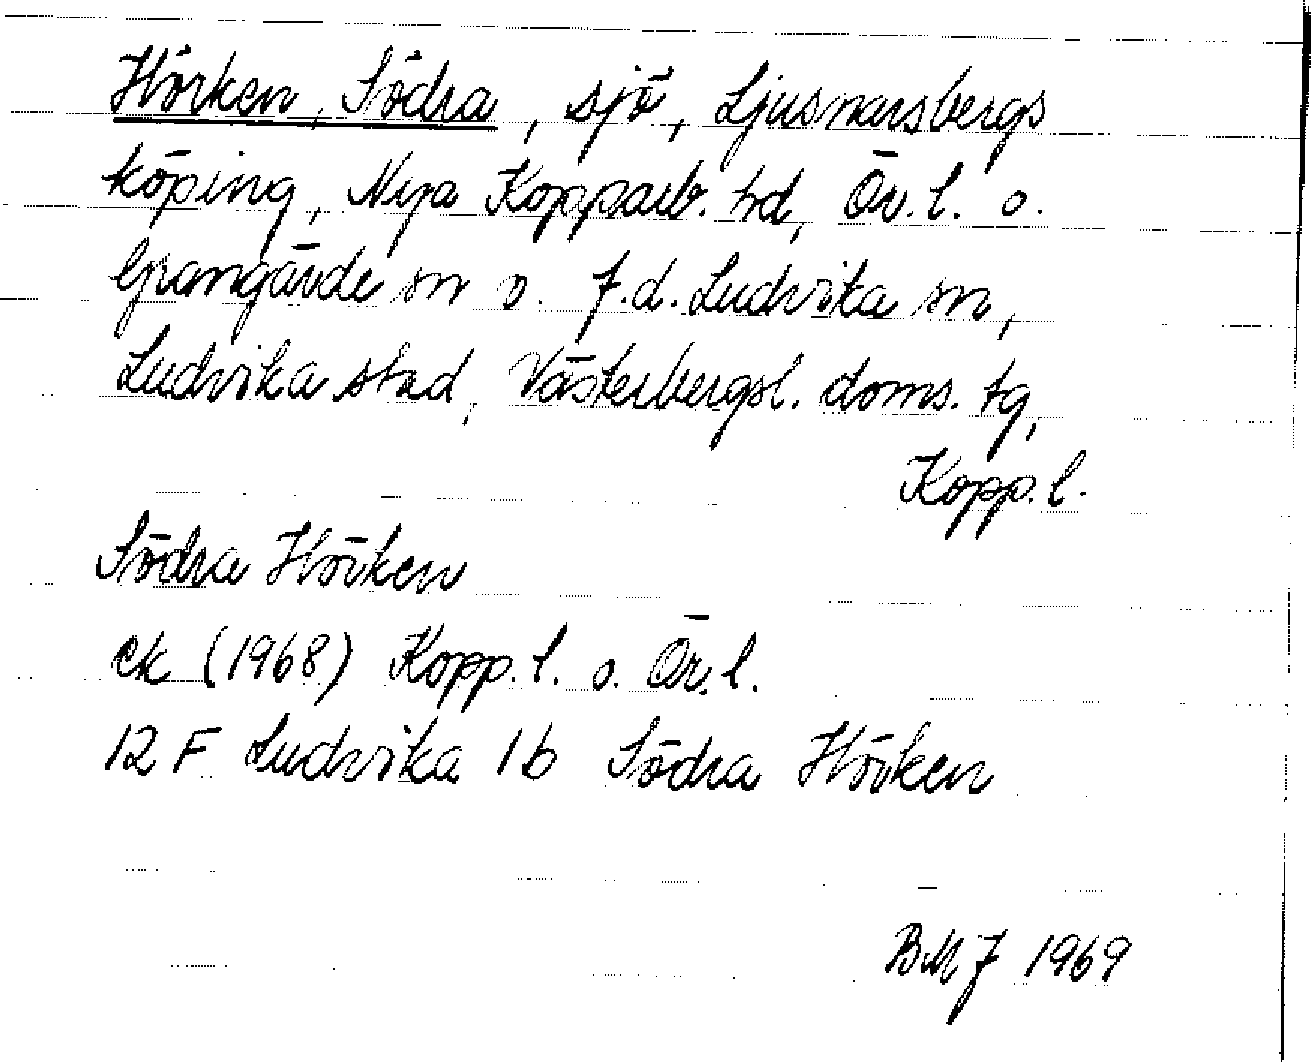 Hörken, Södra, sjö, Ljusnarsbergs
köping, Nya Kopparb. hd, Ör. l. o.
Grangärde sn o. f.d. Ludvika sn,
Ludvika stad, Västerbergsl. doms. tg,
Kopp. l.
Södra Hörken
ek (1968) Kopp. l. o. Ör. l.
12 F Ludvika 1b Södra Hörken
BMJ 1969